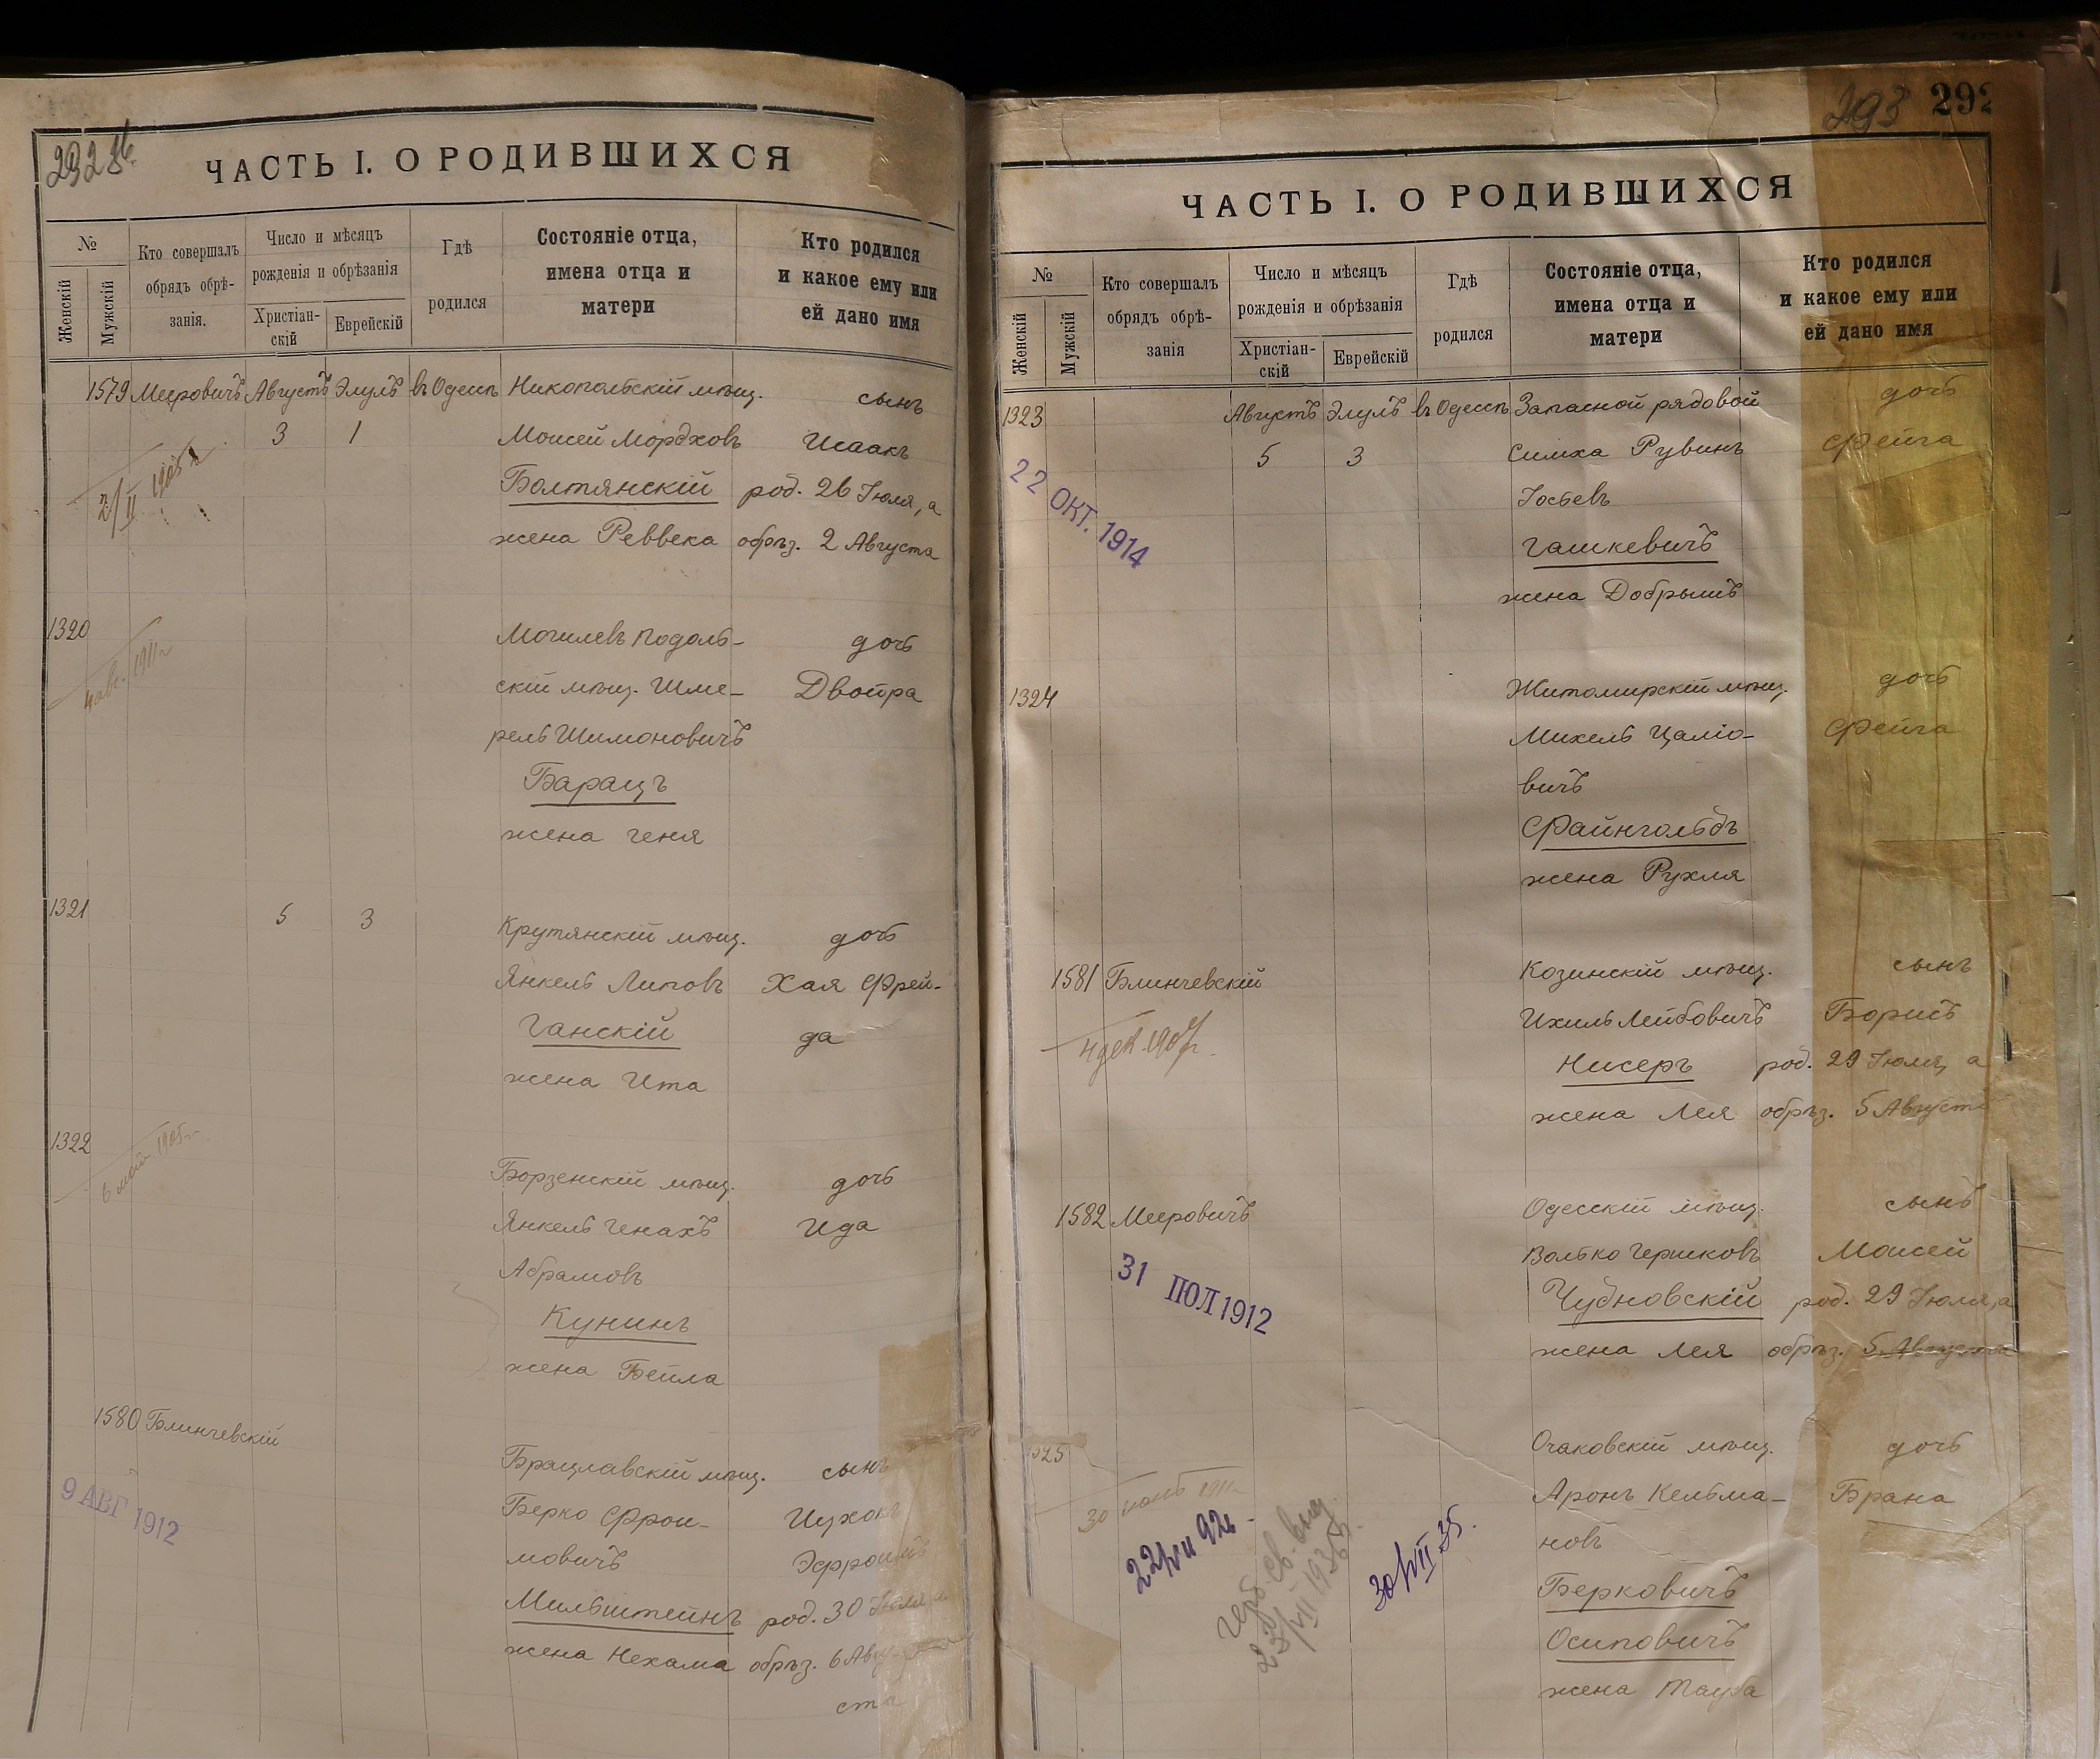 292 об.
ЧАСТЬ I. О РОДИВШИХСЯ
№
Женскій
Мужскій
Кто совершалъ
обрядъ обрѣ-
занія.
Число и мѣсяцъ
рожденія и обрѣзанія
Христіан-
скій
Еврейскій
Гдѣ
родился
Состояніе отца,
имена отца и
матери
Кто родился
и какое ему или
ей дано имя
1579 Мееровичъ Августъ Элулъ въ Одессѣ Никопольскій мѣщ. сынъ
3 1 Моисей Мордховъ Исаакъ
Болтянскій род. 26 Іюля, а
жена Реввека обрѣз. 2 Августа
2/II 1905 г.
1320 Могилевъ Подоль- дочь
скій мѣщ. Шме- Двойра
рель Шимоновичъ
Барацъ
жена Геня
4 авг. 1911 г.
1321 5 3 Крутянскій мѣщ. дочь
Янкель Липовъ Хая Фрей-
Ганскій да
жена Ита
1322 Борзенскій мѣщ. дочь
6 май 1905 г.
Янкель Генахъ Ида
Абрамовъ
Кунинъ
жена Бейла
1580 Блинчевскій Брацлавскій мѣщ. сынъ
9 АВГ 1912
Берко Фрои- Ицхокъ
мовичъ Эфроимъ
Мильштейнъ род. 30 Іюля, а
жена Нехама обрѣз. 6 Авгу-
ста
293 292
ЧАСТЬ I. О РОДИВШИХСЯ
№
Женскій
Мужскій
Кто совершалъ
обрядъ обрѣ-
занія
Число и мѣсяцъ
рожденія и обрѣзанія
Христіан-
скій
Еврейскій
Гдѣ
родился
Состояніе отца,
имена отца и
матери
Кто родился
и какое ему или
ей дано имя
1323 Августъ Элулъ въ Одессѣ Запасной рядовой дочь
5 3 Симха Рувинъ Фейга
22 ОКТ. 1914
Іосьевъ
Гашкевичъ
жена Добрышъ
1324 Житомирскій мѣщ. дочь
Михель Цаліо- Фейга
вичъ
Файнгольдъ
жена Рухля
1581 Блинчевскій Козинскій мѣщ. сынъ
Ихиль Лейбовичъ Борисъ
4 дек. 1907 г.
Нисеръ род. 29 Іюля, а
жена Лея обрѣз. 5 Августа
1582 Мееровичъ Одесскій мѣщ. сынъ
Волько Гершковъ Моисей
31 ІЮЛ 1912
Чудновскій род. 29 Іюля, а
жена Лея обрѣз. 5 Августа
1325 Очаковскій мѣщ. дочь
Аронъ Кельма- Брана
30 1911 г.
новъ
Берковичъ
Осиповичъ
жена Тауба
22/VII 92
Герб. св. выд.
23/VII 1935 г.
30/VII 35.